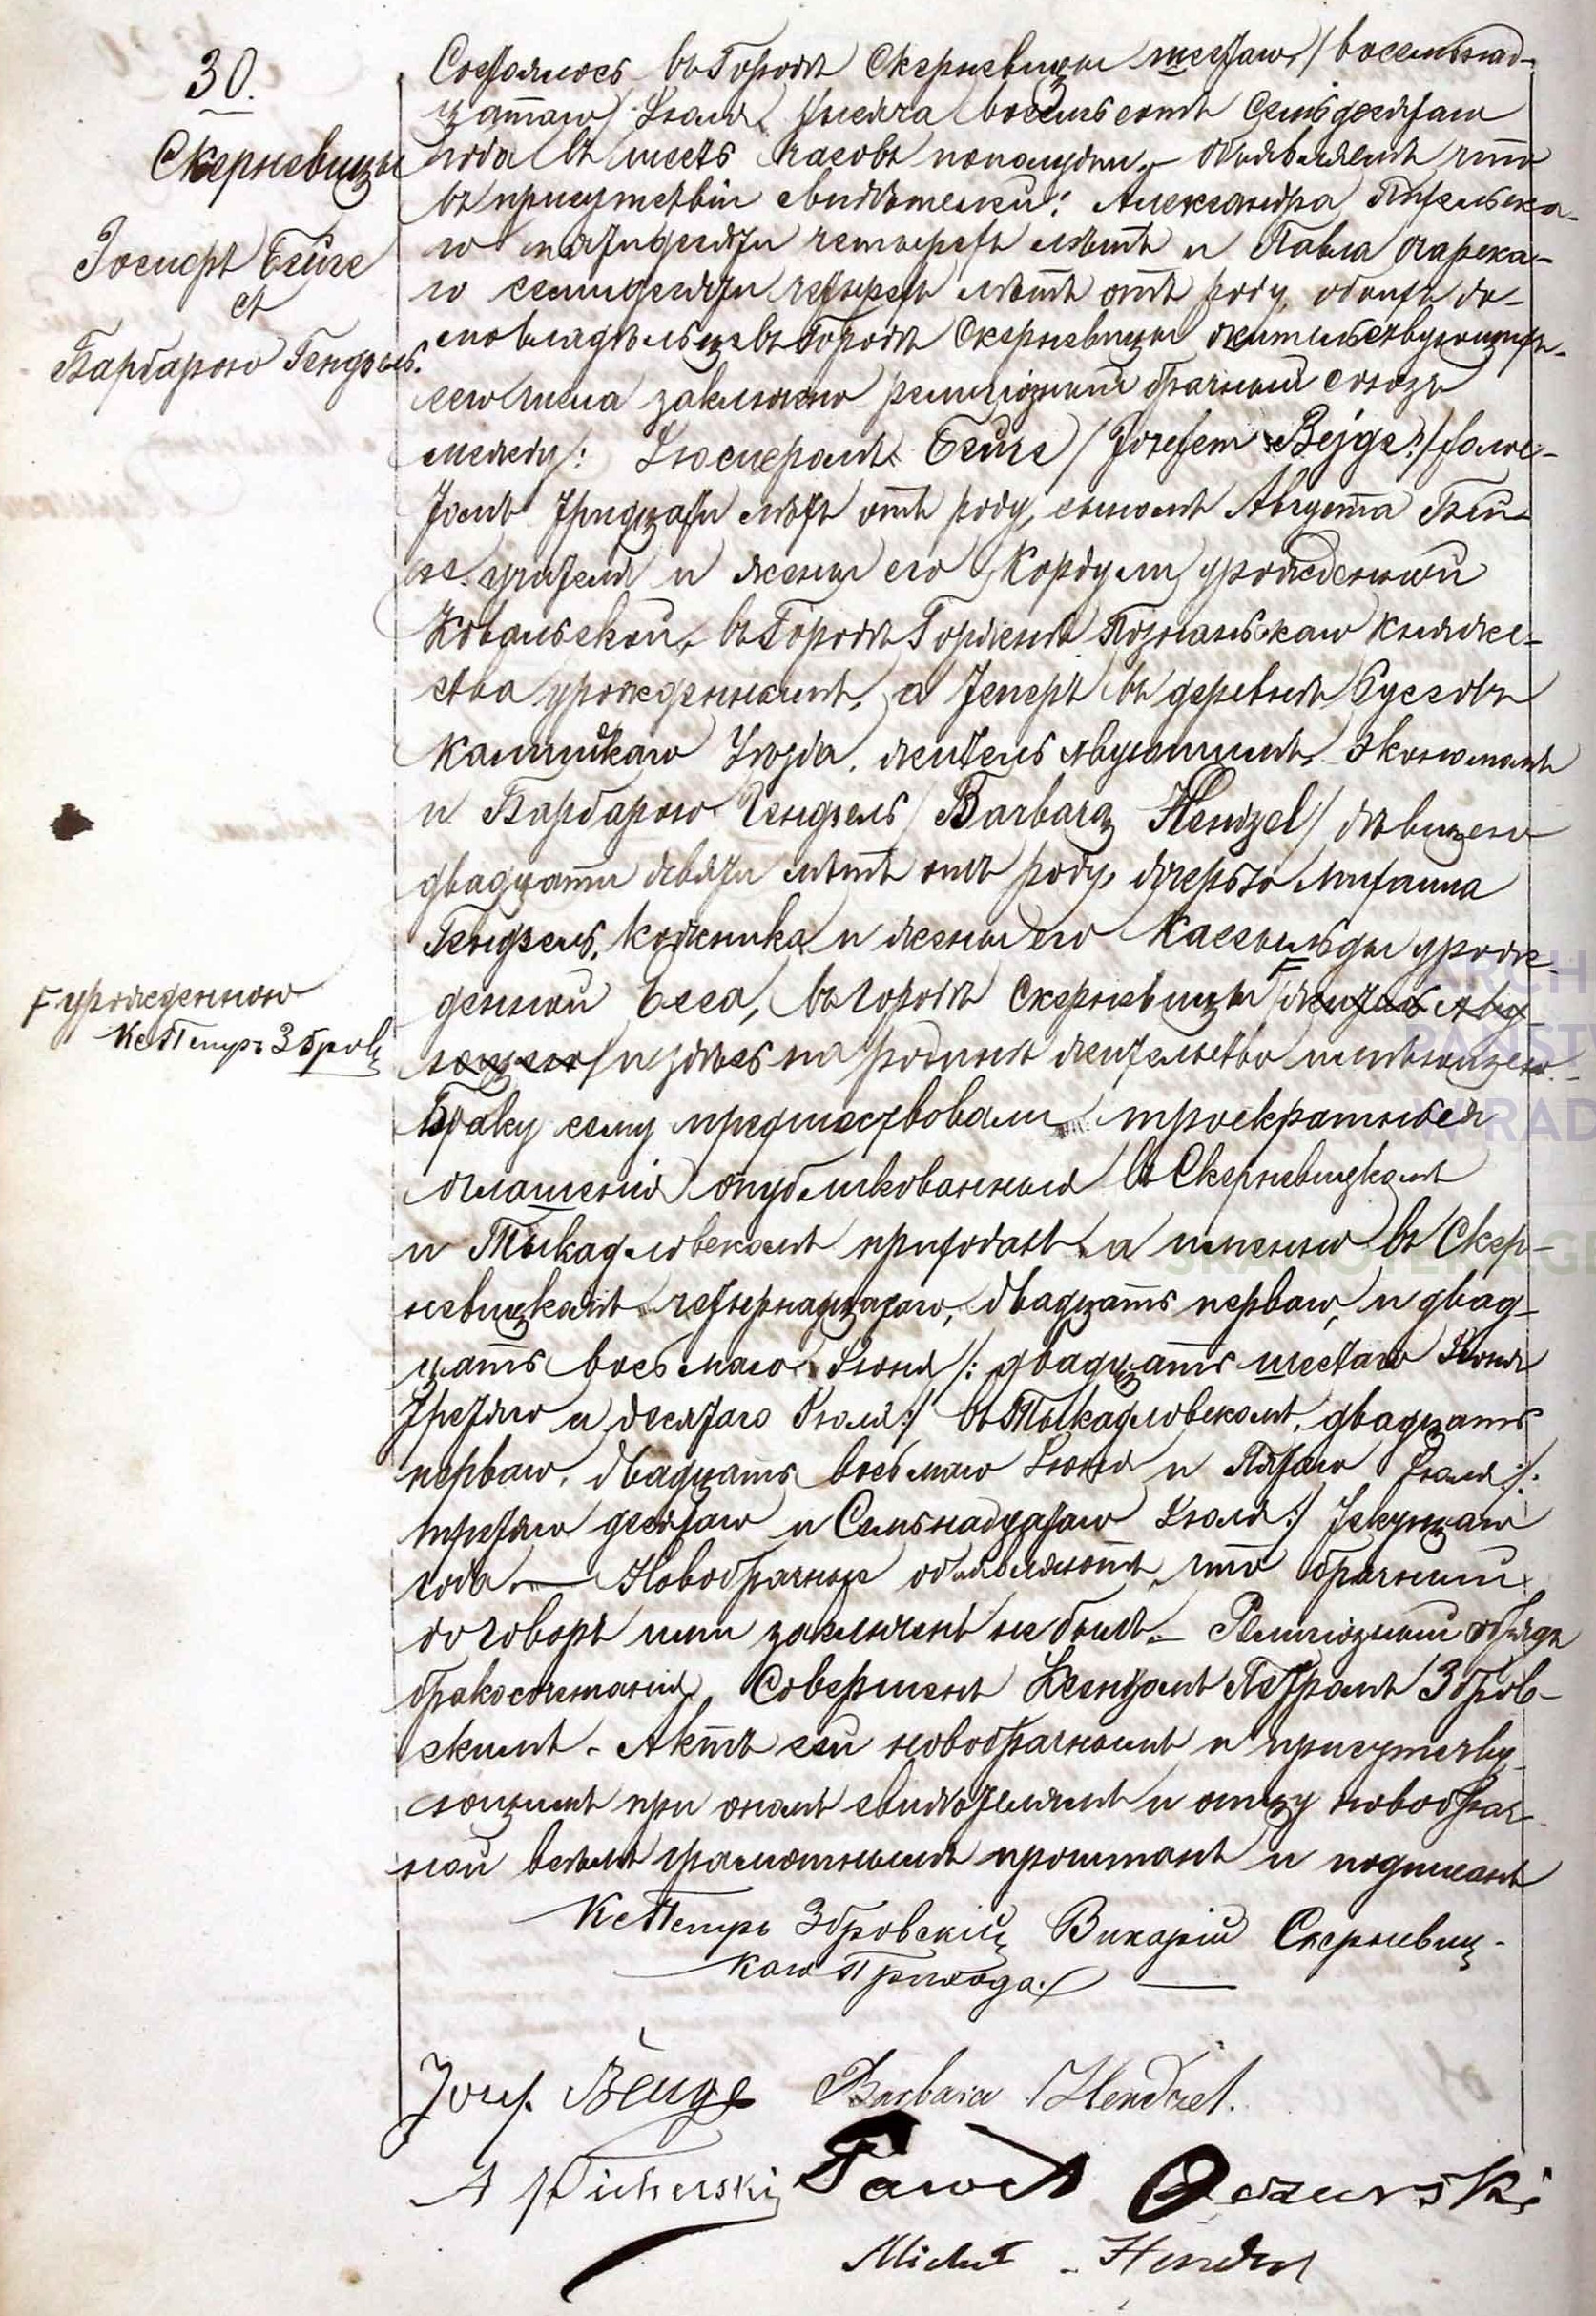 30.
Скерневицы
Іосифъ Бейге
съ
Барбарою Гендзель.
Состоялось въ Городѣ Скерневицы шестаго / восемнад-
цатаго / Іюля тысяча восемьсотъ семьдесятаго
года въ шесть часовъ пополудни. – Объявляемъ что
въ присутствіи свидѣтелей: Александра
го пятидесяти четырехъ лѣтъ и Павла
го семидесяти четырехъ лѣтъ отъ роду, обоихъ до-
мовладѣльцевъ Городѣ Скерневицы жительствующихъ.
сего числа заключенъ религіозный брачный союзъ
между: Іосифомъ Бейге / Józefem Bejge / холос-
тымъ тридцати лѣтъ отъ роду, сыномъ Августа Бей-
ге учителя и жены его Кордули урожденной
Ковальской, въ Городѣ Познаньскаго Княже-
ства урожденнымъ, а теперь въ деревнѣ Руссовъ
Калишскаго Уѣзда, жительствующимъ Экономомъ
и Барбарою Гендзель / Barbarą Hendzel / дѣвицею
двадцати девяти лѣтъ отъ роду, дочерью Михаила
Гендзель, кожевника и жены его урож-
денной Бееа, въ городѣ Скерневицы Ғ жительству
ющею / и здѣсь на родинѣ жительство имѣющею. –
Ғ урожденною
Кс Петръ Збров
Браку сему предшествовали троекратныя
оглашенія опубликованныя въ Скерневицкомъ
и приходахъ, а именно въ Скер-
невицкомъ четырнадцатаго, двадцать перваго, и двад-
цать восьмаго Іюня /: двадцать шестаго Іюня
третяго и десятаго Іюля :/ въ двадцать
перваго, двадцать восьмаго Іюня и Пятаго Іюля /:
третяго десятаго и Семьнадцатаго Іюля :/ текущаго
года. — Новобрачные объявляютъ, что брачный
договоръ ими заключенъ не былъ. – Религіозный обрядъ
бракосочетанія Совершенъ Ксендзомъ Петромъ Збров-
скимъ. – Актъ сей новобрачнымъ и присутству-
ющимъ при ономъ свидѣтелямъ и отцу новобрач-
ной всѣмъ грамотнымъ прочитанъ и подписанъ
Кс Петръ Збровскій Викарій Скерневиц-
каго Прихода.
Józef. Beuge Barbara Hendzel.
A Paweł
Michał Hendzel